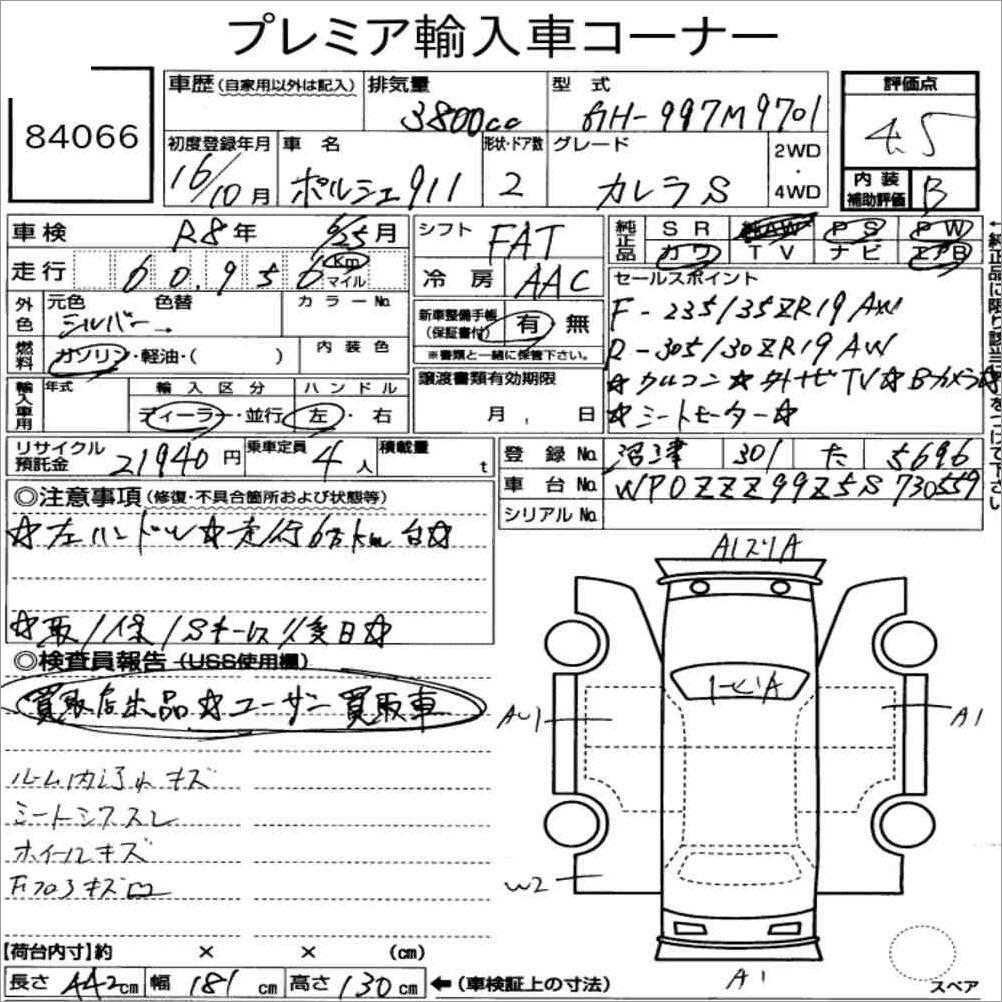 プレミア輸入車コーナー
84066
車歴(自家用以外は記入) 排気量 3800cc 型式 GH-997M9701
評価点 4.5
初度登録年月 16/10月 車名 ポルシェ911 形状・ドア数 2 グレード カレラS 2WD・4WD
内装補助評価 B
車検 R8年 6/25月
シフト FAT
純正品 SR 純AW PS PW
カワ TV ナビ エアB
走行 60,956 Km マイル
冷房 AAC
セールスポイント
外色 元色 シルバー 色替 カラーNo.
新車整備手帳(保証書付) 有 無
※書類と一緒に保管下さい。
F-235/35ZR19AW
燃料 ガソリン・軽油・( ) 内装色
R-305/30ZR19AW
輸入車用 年式 輸入区分 ディーラー・並行 ハンドル 左・右
譲渡書類有効期限
月 日
☆クルコン☆外ナビTV☆Bカメラ☆
☆シートヒーター☆
←純正品に限り該当
をつけて下さい
リサイクル預託金 21940円 乗車定員 4人 積載量 t
登録No. 沼津 301 た 5696
車台No. WP0ZZZ99Z5S730559
シリアルNo.
◎注意事項(修復・不具合箇所および状態等)
☆左ハンドル☆走行6万km台☆
☆取/保/Sキーレス/後日☆
◎検査員報告(USS使用欄)
買取店出品☆ユーザー買取車
ルーム内汚れキズ
シートシワスレ
ホイールキズ
キズ
A1スリA
AU1
A1
W2
A1
スペア
【荷台内寸】約 × × (cm)
長さ 442cm 幅 181cm 高さ 130cm ←(車検証上の寸法)